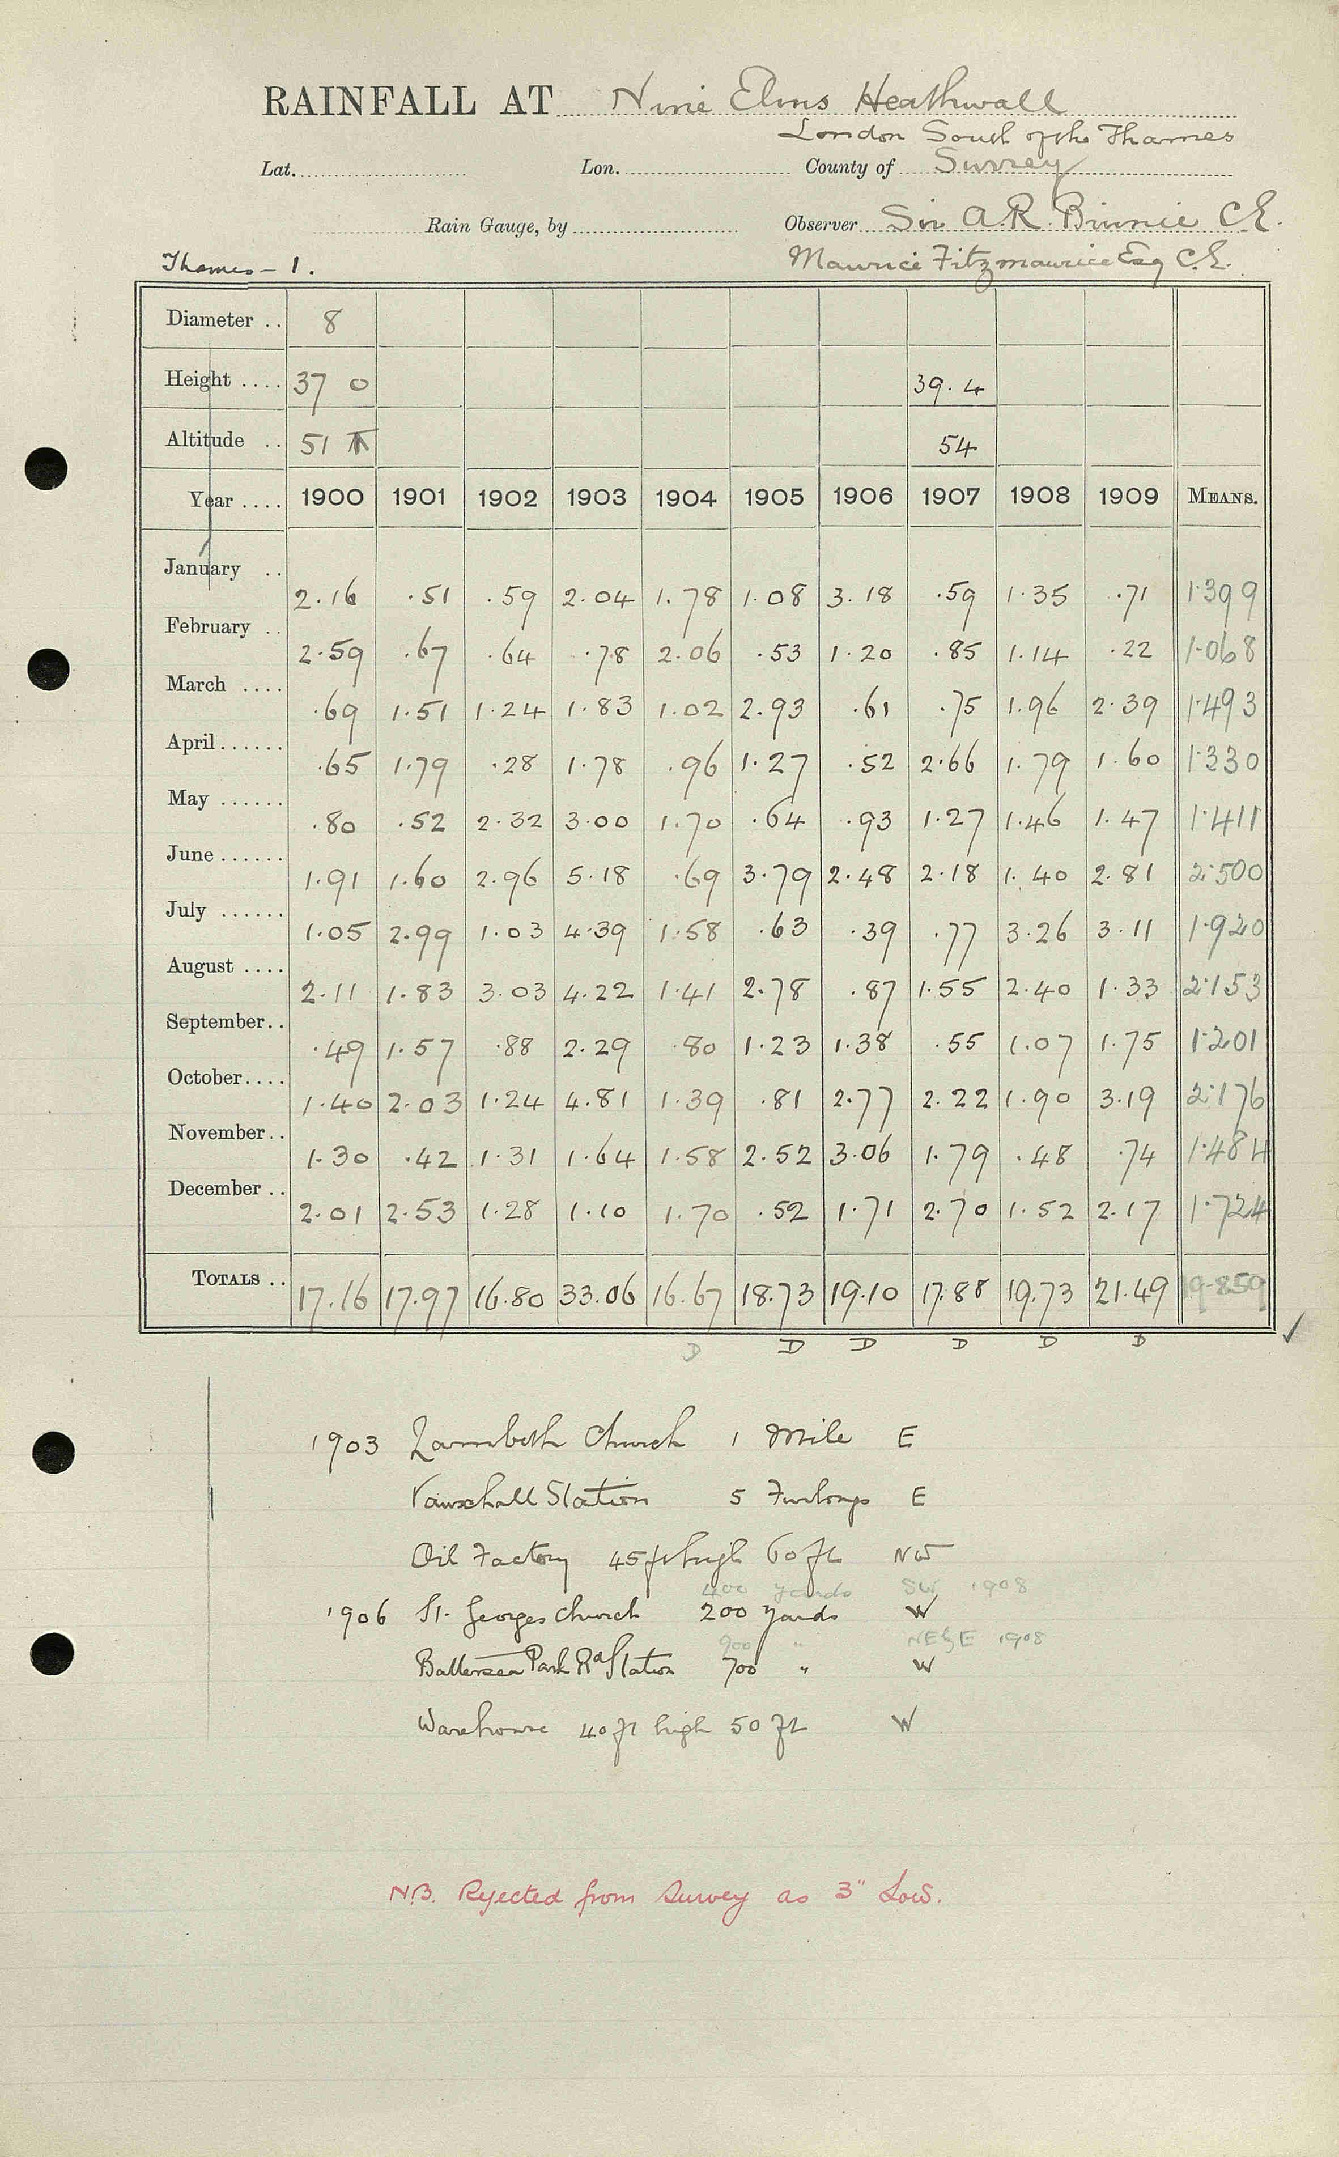 RAINFALL AT Nine Elms Heathwall
London South of the Thames
Lat. Lon. County of Surrey
Rain Gauge, by Observer Sir A.R. Binnie C.E.
Thames - 1. Maurice Fitzmaurice Esq C.E.
Diameter .. 8
Height .... 37 0 39.4
Altitude .. 51 54
Year .... 1900 1901 1902 1903 1904 1905 1906 1907 1908 1909 MEANS.
January .. 2.16 .51 .59 2.04 1.78 1.08 3.18 .59 1.35 .71 1.399
February .. 2.59 .67 .64 .78 2.06 .53 1.20 .85 1.14 .22 1.068
March .... .69 1.51 1.24 1.83 1.02 2.93 .61 .75 1.96 2.39 1.493
April ...... .65 1.79 .28 1.78 .96 1.27 .52 2.66 1.79 1.60 1.330
May ...... .80 .52 2.32 3.00 1.70 .64 .93 1.27 1.46 1.47 1.411
June ...... 1.91 1.60 2.96 5.18 .69 3.79 2.48 2.18 1.40 2.81 2.500
July ...... 1.05 2.99 1.03 4.39 1.58 .63 .39 .77 3.26 3.11 1.920
August .... 2.11 1.83 3.03 4.22 1.41 2.78 .87 1.55 2.40 1.33 2.153
September.. .49 1.57 .88 2.29 .80 1.23 1.38 .55 1.07 1.75 1.201
October.... 1.40 2.03 1.24 4.81 1.39 .81 2.77 2.22 1.90 3.19 2.176
November.. 1.30 .42 1.31 1.64 1.58 2.52 3.06 1.79 .48 .74 1.484
December .. 2.01 2.53 1.28 1.10 1.70 .52 1.71 2.70 1.52 2.17 1.724
TOTALS .. 17.16 17.97 16.80 33.06 16.67 18.73 19.10 17.88 19.73 21.49 19.859
D D D D D D
1903 Lambeth Church 1 Mile E
Vauxhall Station 5 Furlongs E
Oil Factory 45 ft high 60 ft NW
400 yards SW 1908
1906 St. Georges Church 200 yards W
900 " NE by E 1908
Battersea Park Ra Station 700 " W
Warehouse 40 ft high 50 ft W
N.B. Rejected from Survey as 3" Low.